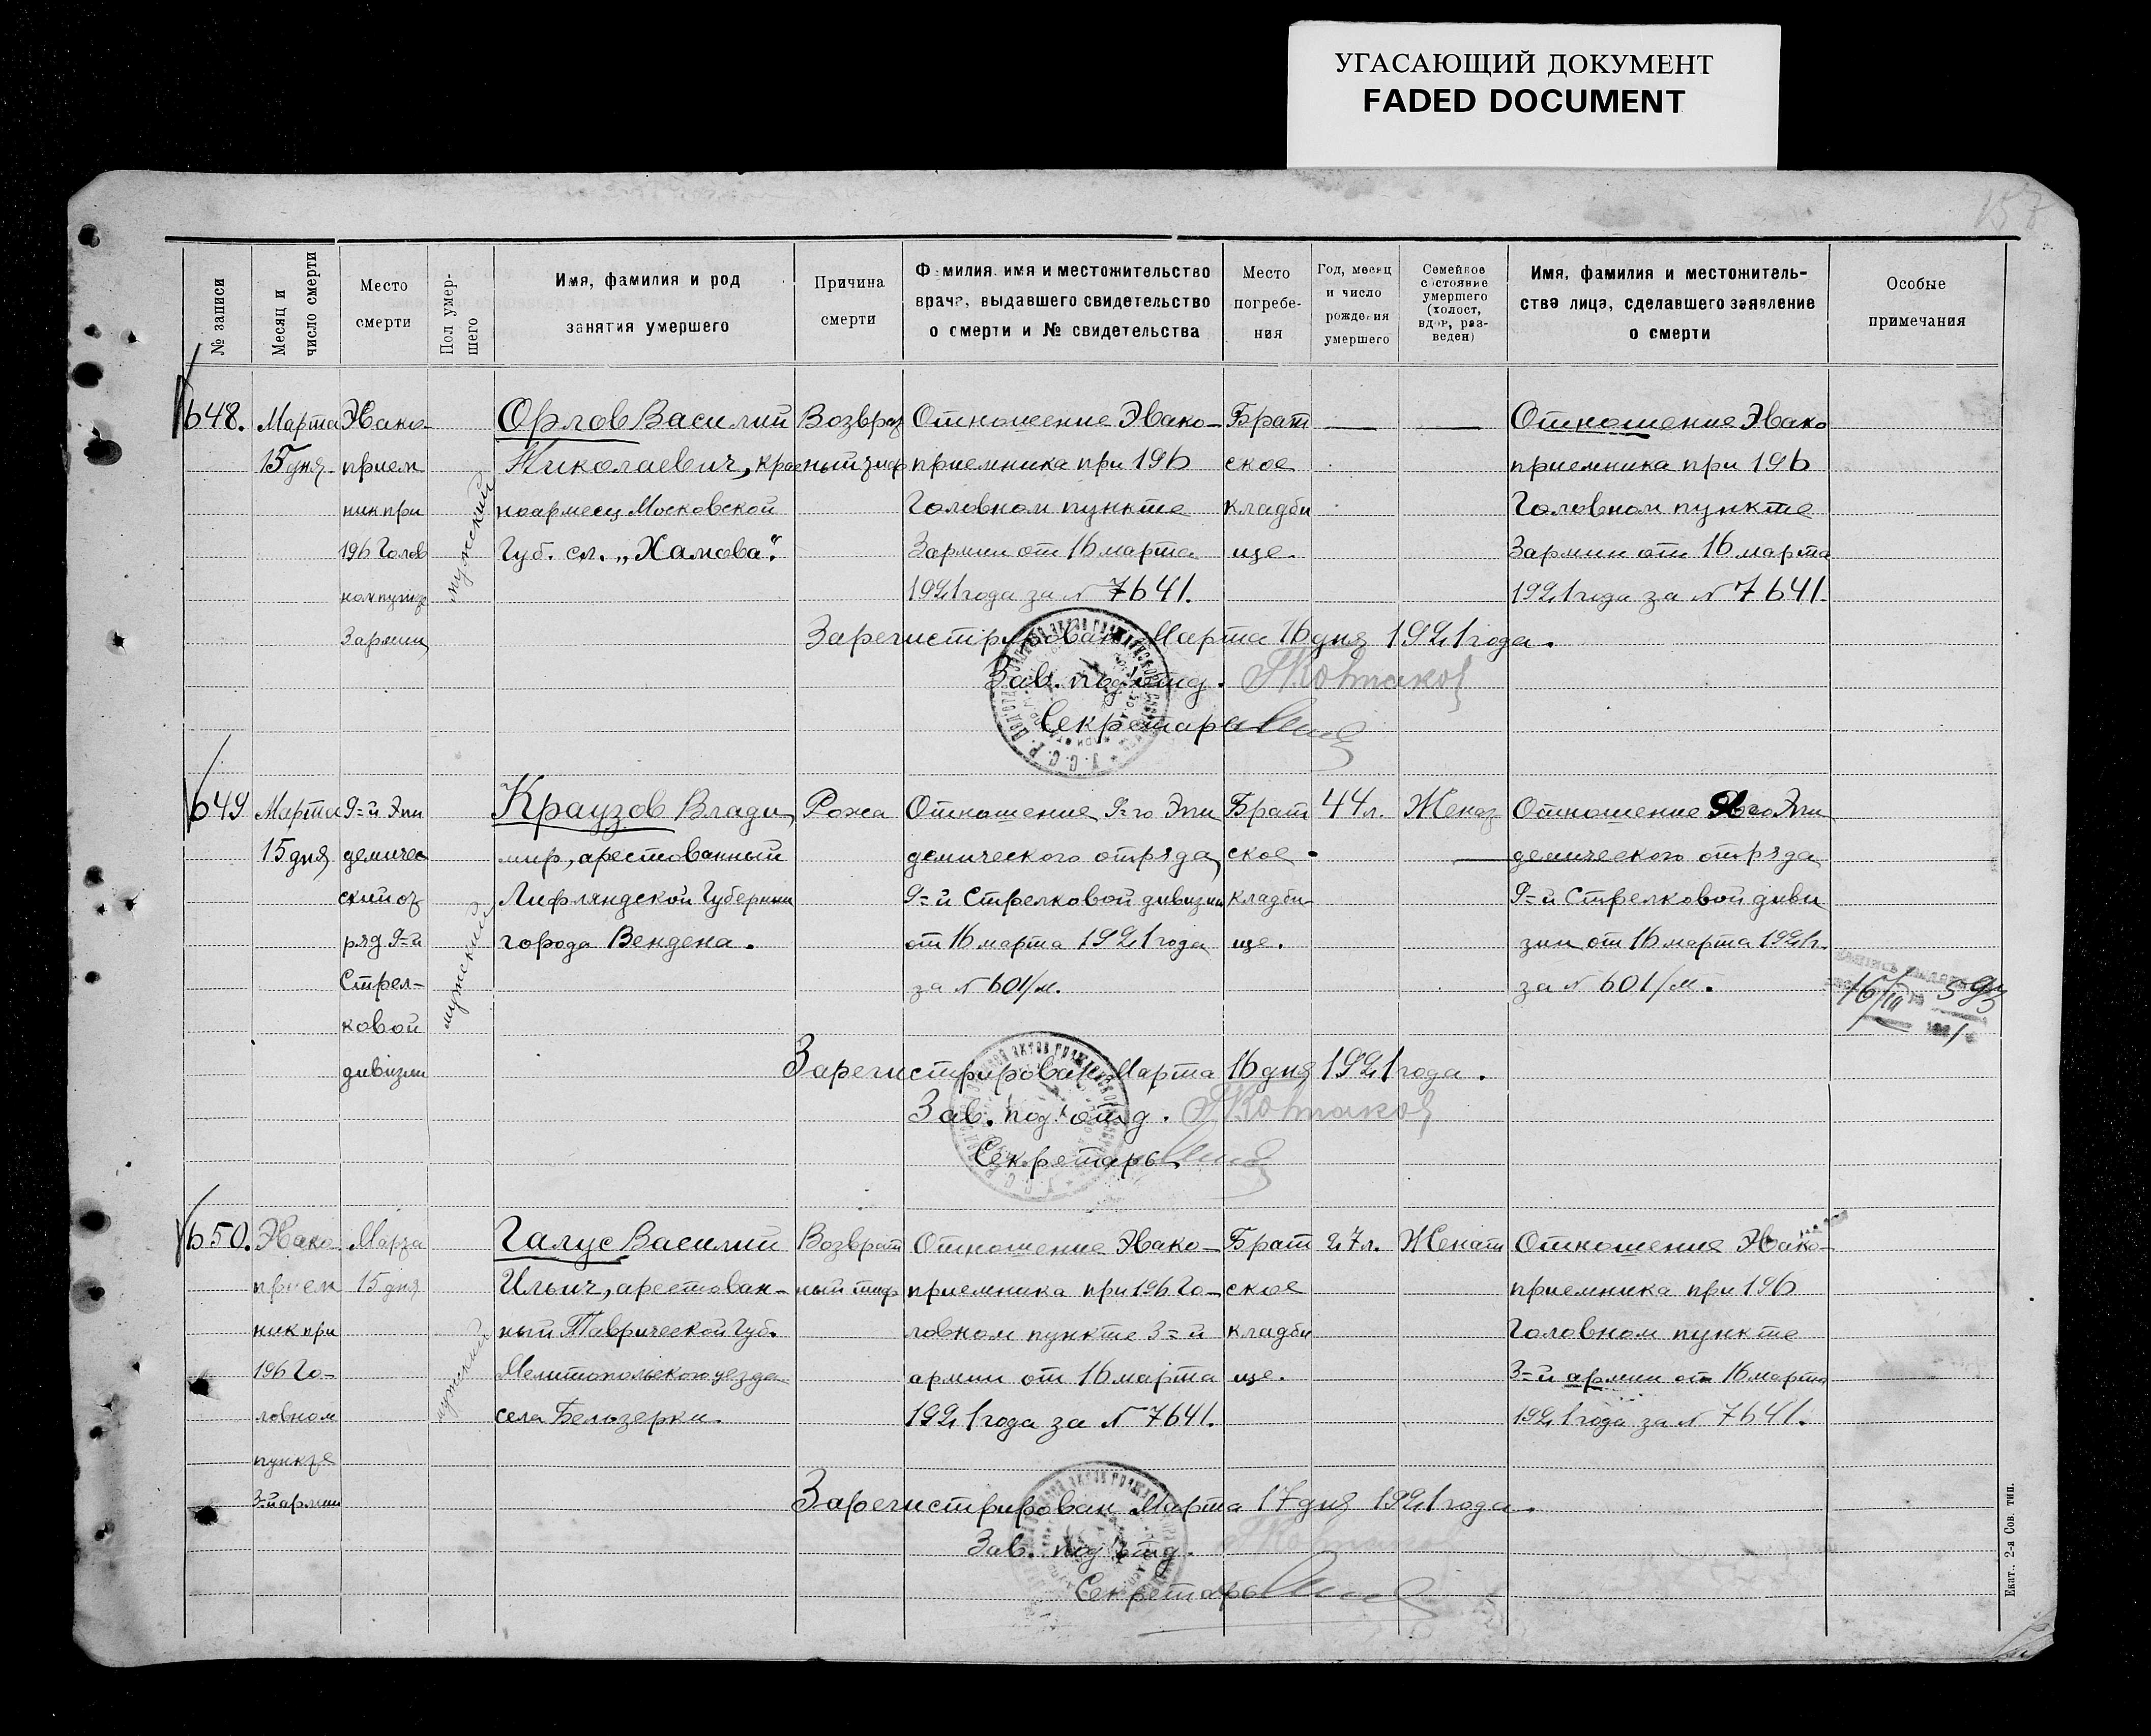 УГАСАЮЩИЙ ДОКУМЕНТ
FADED DOCUMENT
157
№ записи
Месяц и
число смерти
Место
смерти
Пол умер-
шего
Имя, фамилия и род
занятия умершего
Причина
смерти
Фамилия, имя и местожительство
врача, выдавшего свидетельство
о смерти и № свидетельства
Место
погребе-
ния
Год, месяц
и число
рождения
умершего
Семейное
состояние
умершего
(холост,
вдов, раз-
веден)
Имя, фамилия и местожитель-
ство лица, сделавшего заявление
о смерти
Особые
примечания
648.
Марта
15 дня
Эвако-
прием
ник при
196 Голов
ном пункте
3 армии
мужской
Орлов Василий
Николаевич, крас
ноармеец Московской
Губ. сл. „Хамова".
Возврат
ный тиф
Отношение Эвако-
приемника при 196
Головном пункте
3 армии от 16 марта
1921 года за № 7641.
Брат
ское
кладби
ще.
Отношение Эвако
приемника при 196
Головном пункте
3 армии от 16 марта
1921 года за № 7641.
Зарегистрирован Марта 16 дня 1921 года.
Зав. подотд.
Секретарь
649
Марта
15 дня
9-й Эпи
демичес
кий от
ряд 9-й
Стрел-
ковой
дивизии
мужской
Краузов Влади
мир, арестованный
Лифляндской Губернии
города Вендена.
Рожа
Отношение 9-го Эпи
демического отряда
9-й Стрелковой дивизии
от 16 марта 1921 года
за № 601/м.
Брат
ское
кладби
ще.
44 л.
Женат
Отношение 9-го Эпи
демического отряда
9-й Стрелковой диви
зии от 16 марта 1921 г.
за № 601/м.
16/III 593
Зарегистрирован Марта 16 дня 1921 года.
Зав. подотд.
Секретарь
650.
Эвако
прием
ник при
196 Го-
ловном
пункте
3-й армии
Марта
15 дня
мужской
Галус Василий
Ильич, арестован-
ный Таврической Губ.
Мелитопольского уезда
села Белозерки.
Возврат
ный тиф
Отношение Эвако-
приемника при 196 Го-
ловном пункте 3-й
армии от 16 марта
1921 года за № 7641.
Брат
ское
кладби
ще.
27 л.
Женат
Отношение Эвако-
приемника при 196
Головном пункте
3-й армии от 16 марта
1921 года за № 7641.
Зарегистрирован Марта 17 дня 1921 года.
Зав. подотд.
Секретарь
Екат. 2-я Сов. тип.